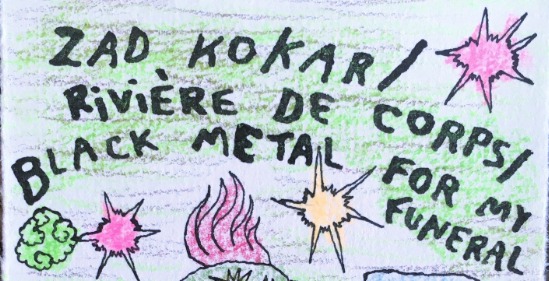 ZAD KOKAR/
RiViÈRE DE CORPS/
BLACK METAL FOR MY
FUNERAL